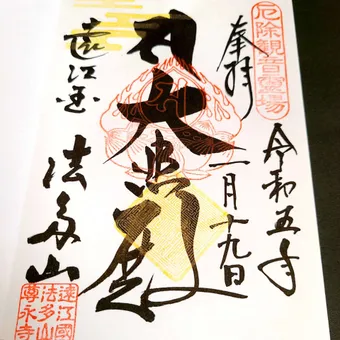 厄除観音霊場
奉拝
令和五年
一月十九日
大悲殿
遠江国
法多山
遠江國
法多山
尊永寺